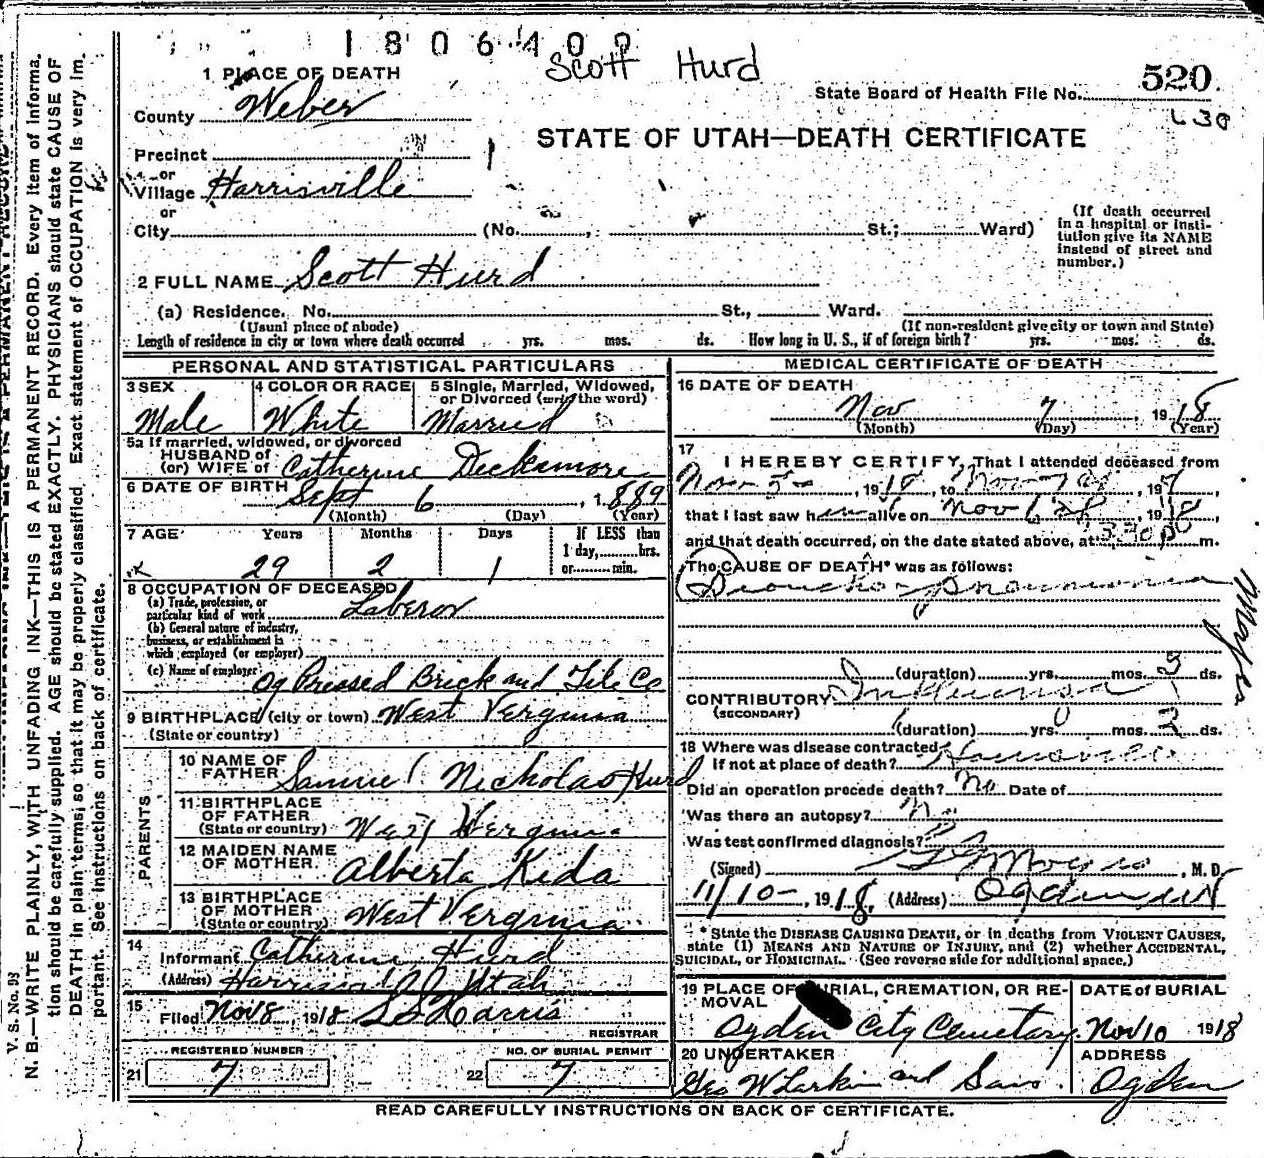 1806400
Scott Hurd
520
State Board of Health File No.
STATE OF UTAH—DEATH CERTIFICATE
1 PLACE OF DEATH
County Weber
Precinct
or
Village Harrisville
or
City (No. St.; Ward)
(If death occurred in a hospital or institution give its NAME instead of street and number.)
2 FULL NAME Scott Hurd
(a) Residence. No. St., Ward.
(Usual place of abode) (If non-resident give city or town and State)
Length of residence in city or town where death occurred yrs. mos. ds. How long in U. S., if of foreign birth? yrs. mos. ds.
PERSONAL AND STATISTICAL PARTICULARS
3 SEX 4 COLOR OR RACE 5 Single, Married, Widowed, or Divorced (write the word)
Male White Married
5a If married, widowed, or divorced
HUSBAND of
(or) WIFE of Catherine Deckamore
6 DATE OF BIRTH Sept 6, 1889
(Month) (Day) (Year)
7 AGE Years Months Days If LESS than
1 day, hrs.
or min.
29 2 1
8 OCCUPATION OF DECEASED
(a) Trade, profession, or
particular kind of work Laberor
(b) General nature of industry,
business, or establishment in
which employed (or employer)
(c) Name of employer Og Pressed Brick and Tile Co
9 BIRTHPLACE (city or town) West Verginia
(State or country)
PARENTS
10 NAME OF
FATHER Samuel Nicholas Hurd
11 BIRTHPLACE
OF FATHER
(State or country) West Verginia
12 MAIDEN NAME
OF MOTHER Alberta Kida
13 BIRTHPLACE
OF MOTHER
(State or country) West Verginia
14
Informant Catherine Hurd
(Address) Utah
15
Filed Nov 8, 1918 Harris
REGISTRAR
REGISTERED NUMBER NO. OF BURIAL PERMIT
21 7 22 7
MEDICAL CERTIFICATE OF DEATH
16 DATE OF DEATH
Nov 7, 1918
(Month) (Day) (Year)
17
I HEREBY CERTIFY, That I attended deceased from
Nov 5, 1918, to Nov 7, 191
that I last saw him alive on Nov, 1918
and that death occurred, on the date stated above, at m.
The CAUSE OF DEATH* was as follows:
Broncho pneumonia
(duration) yrs. mos. 3 ds.
CONTRIBUTORY Influensa
(SECONDARY)
(duration) yrs. mos. ds.
18 Where was disease contracted
If not at place of death? Harrisville
Did an operation precede death? No Date of
Was there an autopsy? No
Was test confirmed diagnosis?
(Signed) , M. D.
11/10-, 1918, (Address) Ogden
* State the DISEASE CAUSING DEATH, or in deaths from VIOLENT CAUSES,
state (1) MEANS AND NATURE OF INJURY, and (2) whether ACCIDENTAL,
SUICIDAL, or HOMICIDAL. (See reverse side for additional space.)
19 PLACE OF BURIAL, CREMATION, OR REMOVAL DATE of BURIAL
Ogden City Cemetary Nov 10 1918
20 UNDERTAKER ADDRESS
Geo W Larkin and Sons Ogden
READ CAREFULLY INSTRUCTIONS ON BACK OF CERTIFICATE.
V. S. No. 93
N. B.—WRITE PLAINLY, WITH UNFADING INK—THIS IS A PERMANENT RECORD. Every item of informa-
tion should be carefully supplied. AGE should be stated EXACTLY. PHYSICIANS should state CAUSE OF
DEATH in plain terms, so that it may be properly classified. Exact statement of OCCUPATION is very im-
portant. See instructions on back of certificate.